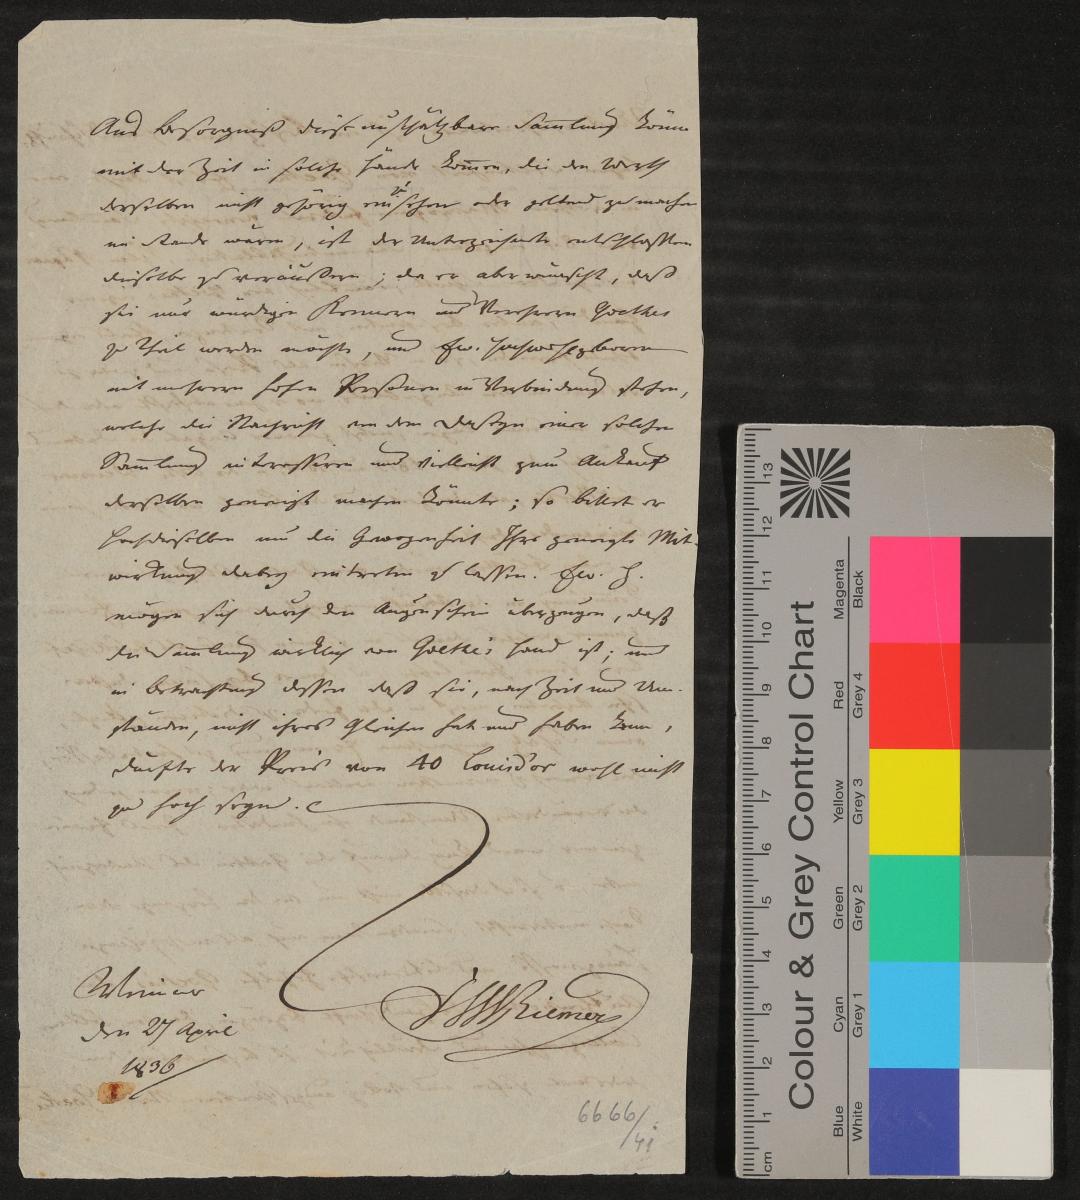 Aus Besorgniß diese unschätzbare Sammlung könne
mit der Zeit in solche Hände kommen, die den Werth
derselben nicht gehörig einzusehen oder geltend zu machen
im Stande wären, ist der Unterzeichnete entschlossen
dieselbe zu veräußern; da er aber wünscht, daß
sie nur würdigen Kennern und Verehrern Goethes
zu Theil werden möchte, und Ew. Hochwohlgeboren
mit mehrern hohen Personen in Verbindung stehen,
welche die Nachricht von dem Daseyn einer solchen
Sammlung interessiren und vielleicht zum Ankauf
derselben geneigt machen könnte; so bittet er
Hochdieselben um die Gewogenheit Ihre geneigte Mit-
wirkung dabey eintreten zu lassen. Ew. H.
mögen sich durch den Augenschein überzeugen, daß
die Sammlung wirklich von Goethe's Hand ist; und
in Betrachtung dessen daß sie, nach Zeit und Um-
ständen, nicht ihres Gleichen hat und haben kann,
dürfte der Preis von 40 Louisd'or wohl nicht
zu hoch seyn.
Weimar
den 27 April
1836
FWRiemer
6666/41
cm 1 2 3 4 5 6 7 8 9 10 11 12 13
Colour & Grey Control Chart
Blue Cyan Green Yellow Red Magenta
White Grey 1 Grey 2 Grey 3 Grey 4 Black